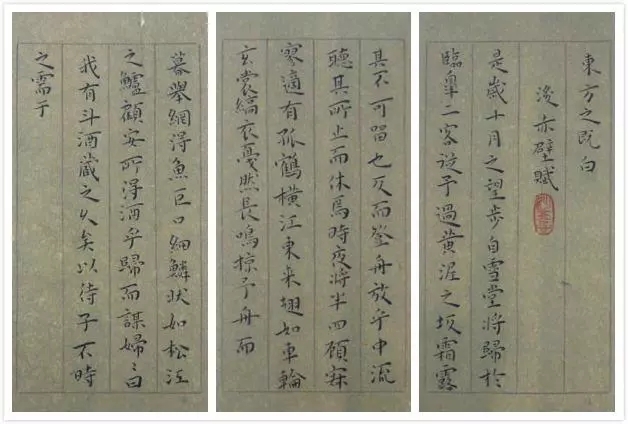 東方之既白
後赤壁賦
是歲十月之望步自雪堂將歸於
臨臯二客從予過黃泥之坂霜露
其不可留也反而登舟放乎中流
聽其所止而休焉時夜將半四顧寂
寥適有孤鶴橫江東来翅如車輪
玄裳縞衣戛然長鳴掠予舟而
暮舉網得魚巨口細鱗狀如松江
之鱸顧安所得酒乎歸而謀婦〻曰
我有斗酒藏之久矣以待子不時
之需于